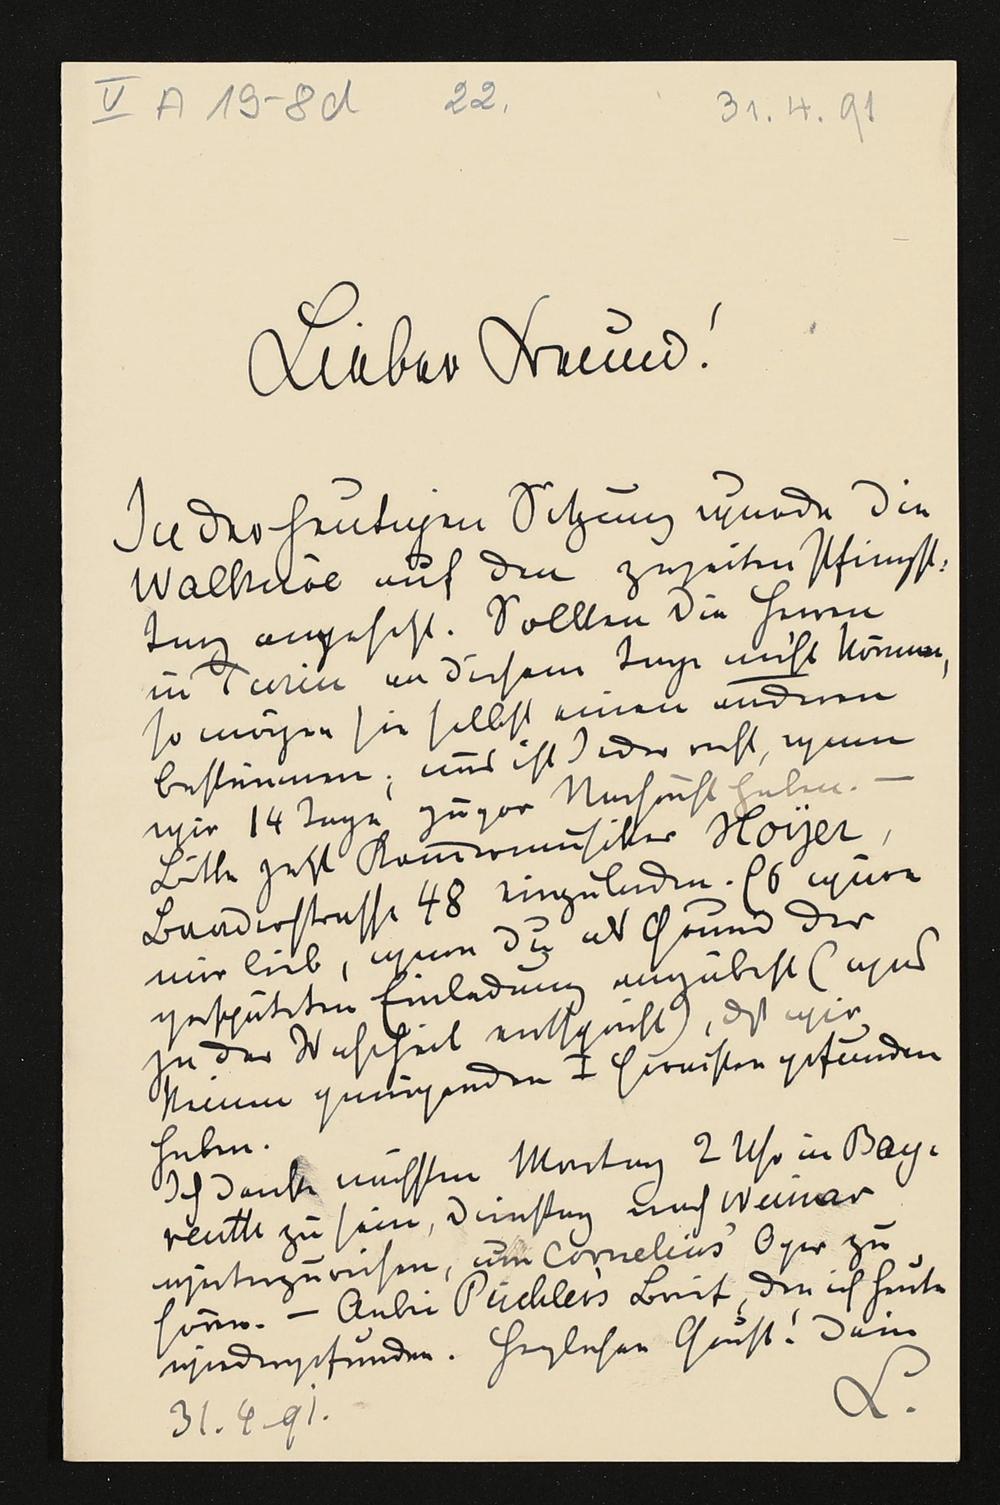 V A 19-8d 22. 31. 4. 91
Lieber Freund!
In der heutigen Sitzung wurde die
Walküre auf den zweiten Pfingst-
tag angesetzt. Sollten die Herren
in Turin an diesem Tage nicht können,
so mögen sie selbst einen anderen
bestimmen; uns ist jeder recht, wenn
wir 14 Tage zuvor Nachricht haben. —
Bitte jetzt Kammermusiker Hoyer,
Baaderstrasse 48 einzuladen. Es wäre
mir lieb, wenn Du als Grund der
verspäteten Einladung angäbest (was
ja der Wahrheit entspricht), dß wir
keinen genügenden I Hornisten gefunden
haben.
Ich denke nächsten Montag 2 Uhr in Bay-
reuth zu sein, Dienstag nach Weimar
weiterzureisen, um Cornelius' Oper zu
hören. — Anbei Püchler's Brief, den ich heute
wiedergefunden. Herzlichen Gruß! Dein
31. 4. 91. L.